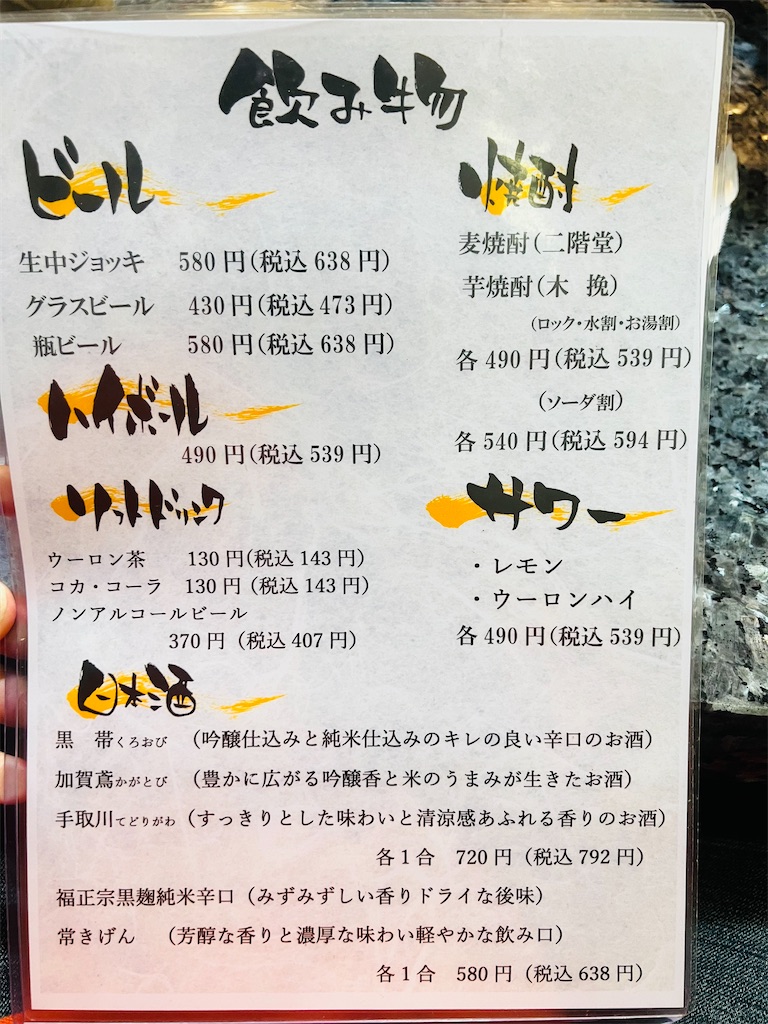 飲み物
ビール
生中ジョッキ 580円(税込638円)
グラスビール 430円(税込473円)
瓶ビール 580円(税込638円)
ハイボール
490円(税込539円)
ソフトドリンク
ウーロン茶 130円(税込143円)
コカ・コーラ 130円(税込143円)
ノンアルコールビール
370円(税込407円)
焼酎
麦焼酎(二階堂)
芋焼酎(木挽)
(ロック・水割・お湯割)
各490円(税込539円)
(ソーダ割)
各540円(税込594円)
サワー
・レモン
・ウーロンハイ
各490円(税込539円)
日本酒
黒 帯くろおび (吟醸仕込みと純米仕込みのキレの良い辛口のお酒)
加賀鳶かがとび (豊かに広がる吟醸香と米のうまみが生きたお酒)
手取川てどりがわ (すっきりとした味わいと清涼感あふれる香りのお酒)
各1合 720円(税込792円)
福正宗黒麹純米辛口(みずみずしい香りドライな後味)
常きげん (芳醇な香りと濃厚な味わい軽やかな飲み口)
各1合 580円(税込638円)